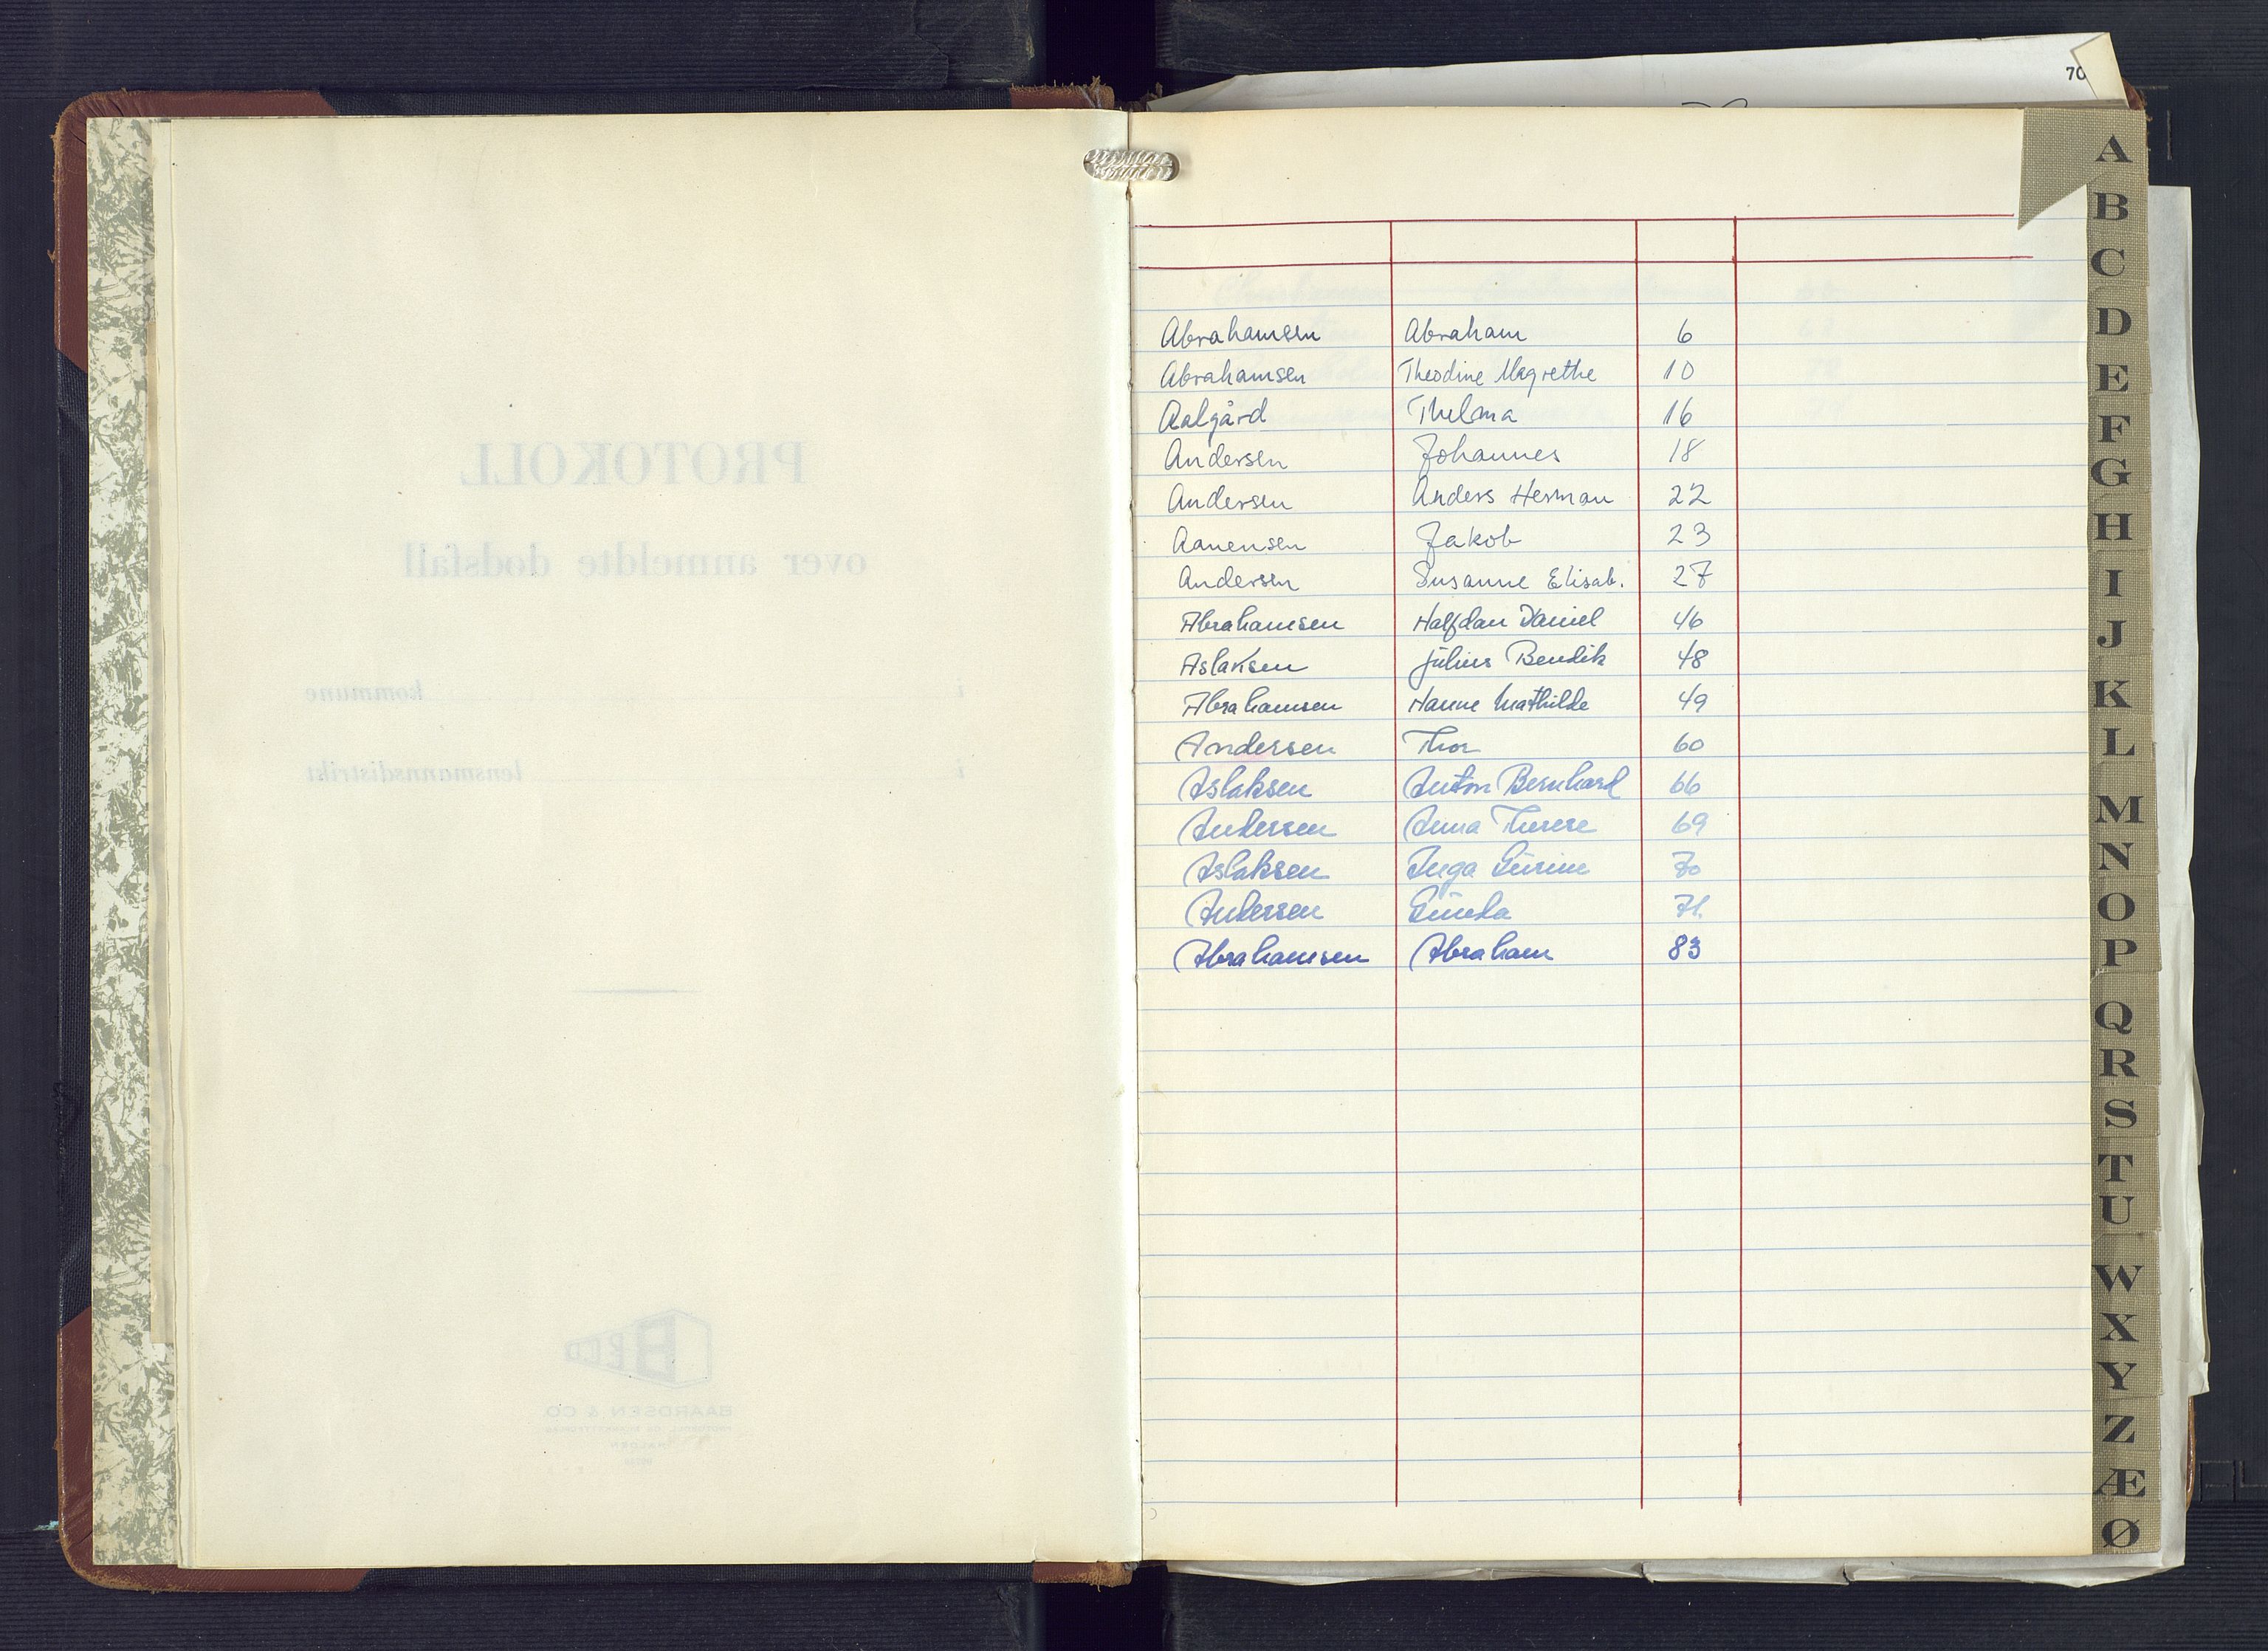 70
PROTOKOLL
over anmeldte dødsfall
i kommune
i lensmannsdistrikt
BAARDSEN & CO
HALDEN
Abrahamsen Abraham 6
Abrahamsen Theodine Magrethe 10
Aalgård Thelma 16
Andersen Johannes 18
Andersen Anders Herman 22
Aanensen Jakob 23
Andersen Susanne Elisab. 27
Abrahamsen Halfdan Daniel 46
Aslaksen Julius Bendik 48
Abrahamsen Hanne Mathilde 49
Andersen Thor 60
Aslaksen Anton Bernhard 66
Andersen Anna Therese 69
Aslaksen Inga Gurine 70
Andersen Gunda 71.
Abrahamsen Abraham 83
A
B
C
D
E
F
G
H
I
J
K
L
M
N
O
P
Q
R
S
T
U
W
X
Y
Z
Æ
Ø